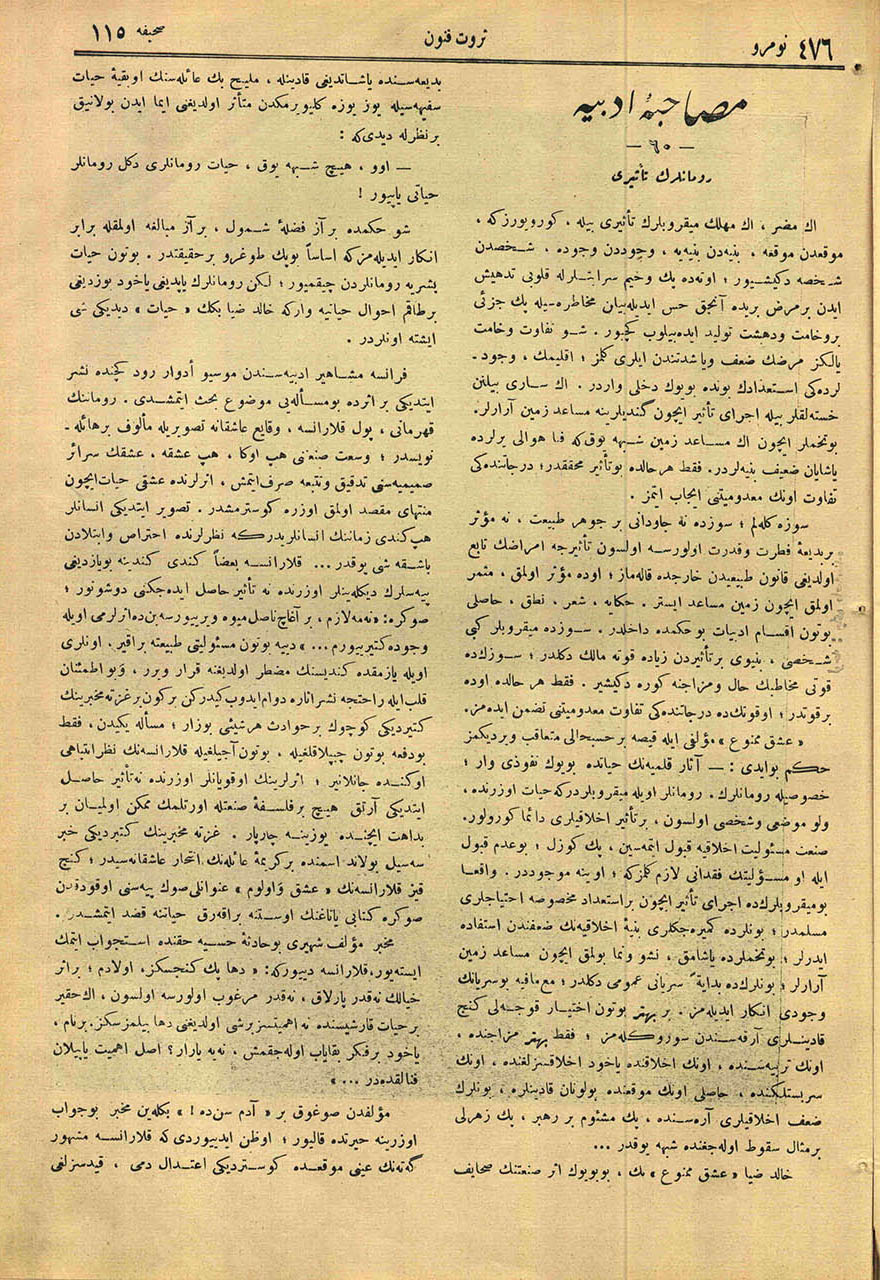 نومرو ٤٧٦
ثروت فنون
صحیفه ١١٥
مصاحبۀ ادبیه
— ٦٠ —
رومانلرك تأثیری
اك مضر ، اك مهلك میقروبلرك تأثیری بیله ، كورویورزكه ،
موقعدن موقعه ، بنیه‌دن بنیه‌یه ، وجوددن وجوده ، شخصدن
شخصه دكیشیور ؛ اوته‌ده پك وخیم سرایتلرله قلوبی تدهیش
ایدن برمرض بریده آنجق حس ایدیله‌بیلن مخاطره‌سیله پك جزئی
بروخامت ودهشت تولید ایده‌بیلوب كچیور . شو تفاوت وخامت
یالكز مرضك ضعف ویاشدتندن ایلری كلمز ؛ اقلیمك ، وجود-
لرده‌كی استعدادك بونده بویوك دخلی واردر . اك ساری بیلنن
خسته‌لقلر بیله اجرای تأثیر ایچون كندیلرینه مساعد زمین آرارلر.
بوتخملر ایچون اك مساعد زمین شبهه یوق‌كه فنا هوالی یرلرده
یاشایان ضعیف بنیه‌لردر. فقط هرحالده بوتأثیر محققدر؛ درجاتنده‌كی
تفاوت اونك معدومیتنی ایجاب ایتمز .
سوزه كله‌لم ؛ سوزده نه جاودانی بر جوهر طبیعت ، نه مؤثر
بربدیعۀ فطرت وقدرت اولورسه اولسون تأثیرجه امراضك تابع
اولدیغی قانون طبیعیدن خارجده قاله‌ماز ؛ اوده مؤثر اولمق ، مثمر
اولمق ایچون زمین مساعد ایستر . حكایه ، شعر ، نطق ، حاصلی
بوتون اقسام ادبیات بوحكمده داخلدر . سوزده میقروبلر كبی
شخصی ، بنیوی برتأثیردن زیاده قوته مالك دكلدر ؛ سوزك‌ده
قوتی مخاطبك حال ومزاجنه كوره دكیشیر . فقط هر حالده اوده
برقوتدر ؛ اوقوتك‌ده درجاتنده‌كی تفاوت معدومیتنی تضمن ایده‌مز.
« عشق ممنوع » مؤلفی ایله قیصه برحسبحالی متعاقب ویردیكمز
حكم بوایدی : — آثار قلمیه‌نك حیاتده بویوك نفوذی وار ؛
خصوصیله رومانلرك . رومانلر اویله میقروبلردركه حیات اوزرنده ،
ولو موضعی وشخصی اولسون ، برتأثیر اخلاقیلری دائما كورولور.
صنعت مسئولیت اخلاقیه قبول ایتمه‌سین ، پك كوزل ؛ بوعدم قبول
ایله او مسؤلیتك فقدانی لازم كلمزكه ؛ اوینه موجوددر . واقعا
بومیقروبلرك‌ده اجرای تأثیر ایچون براستعداد مخصوصه احتیاجلری
مسلمدر ؛ بونلرده كمیره‌جكلری بنیۀ اخلاقیه‌نك ضعفندن استفاده
ایدرلر ؛ بوتخملرده یاشامق ، نشو ونما بولمق ایچون مساعد زمین
آرارلر ؛ بونلرك‌ده بدایةً سریانی عمومی دكلدر ؛ مع‌مافیه بوسریانك
وجودی انكار ایدیله‌مز . بر بهتر بوتون اختیار قوجه‌لی كنج
قادینلری آرقه‌سندن سوروكله‌مز ؛ فقط بهتر مزاجنده ،
اونك تربیه‌سنده ، اونك اخلاقنده یاخود اخلاقسزلغنده ، اونك
سربستلكنده ، حاصلی اونك موقعنده بولونان قادینلره ، بونلرك
ضعف اخلاقیلری آره‌سنده ، پك مشئوم بر رهبر ، پك زهرلی
برمثال سقوط اوله‌جغنده شبهه یوقدر ...
خالد ضیا « عشق ممنوع » ك ، بوبویوك اثر صنعتنك صحایف
بدیعه‌سنده یاشاتدیغی قادینله ، ملیح بك عائله‌سنك اوبقیۀ حیات
سفیهه‌سیله یوز یوزه كلیویرمكدن متأثر اولدیغنی ایما ایدن بولانیق
برنظرله دیدی‌كه :
— اوو ، هیچ شبهه یوق ، حیات رومانلری دكل رومانلر
حیاتی یاپیور !
شو حكمده برآز فضلۀ شمول ، برآز مبالغه اولمقله برابر
انكار ایدیله‌مزكه اساساً بوپك طوغرو برحقیقتدر . بوتون حیات
بشریه رومانلردن چیقمیور ؛ لكن رومانلرك یاپدیغی یاخود بوزدیغی
برطاقم احوال حیاتیه واركه خالد ضیا بكك « حیات » دیدیكی شی
ایشته اونلردر .
فرانسه مشاهیر ادبیه‌سندن موسیو أدوار رود كچنده نشر
ایتدیكی براثرده بومسأله‌یی موضوع بحث ایتمشدی . روماننك
قهرمانی ، پول قلارانسه ، وقایع عاشقانه تصویریله مألوف برهائله-
نویسدر ؛ وسعت صنعتنی هپ اوكا ، هپ عشقه ، عشقك سرائر
صمیمیه‌سنی تدقیق وتتبعه صرف‌ایتمش ، اثرلرنده عشقی حیات‌ایچون
منتهای مقصد اولمق اوزره كوسترمشدر . تصویر ایتدیكی انسانلر
هپ كندی زماننك انسانلریدركه نظرلرنده احتراص وابتلادن
باشقه شی یوقدر ... قلارانسه بعضاً كندی كندینه بویازدیغی
پیه‌سلرك دیكله‌ینلر اوزرنده نه تأثیر حاصل ایده‌جكنی دوشونور ؛
صوكره: «نه‌مه‌لازم ، بر آغاج ناصل میوه ویرییورسه بن‌ده‌اثرلرمی اویله
وجوده كتیرییورم ...» دییه بوتون مسئولیتی طبیعته براقیر . اونلری
اویله یازمقده كندیسنك مضطر اولدیغنه قرار ویرر ، وبواطمئنان
قلب‌ایله راحتجه نشرآثاره دوام‌ایدوب كیدركن بركون برغزته مخبرینك
كتیردیكی كوچوك برحوادث هرشیئی بوزار ؛ مسأله یكیدن ، فقط
بودفعه بوتون چیپلاقلغیله ، بوتون آجیلغیله قلارانسه‌نك نظرانتباهی
اوكنده جانلانیر ؛ اثرلرینك اوقویانلر اوزرنده نه‌تأثیر حاصل
ایتدیكی آرتق هیچ برفلسفۀ صنعتله اورتلمك ممكن اولمیان بر
بداهت ایچنده یوزینه چارپار . غزته مخبرینك كتیردیكی خبر
سه‌سیل بولاند اسمنده بركریمۀ عائله‌نك انتحار عاشقانه‌سیدر ؛ كنج
قیز قلارانسه‌نك « عشق واولوم » عنوانلی صوك پیه‌سنی اوقودقدن
صوكره كتابی یاتاغنك اوستنه براقه‌رق حیاتنه قصد ایتمشدر .
مخبر مؤلف شهیری بوحادثۀ حسیه حقنده استجواب ایتمك
ایسته‌یور، قلارانسه دییوركه: « دها پك كنجسكز، اولادم ؛ براثر
خیالك نه‌قدر پارلاق ، نه‌قدر مرغوب اولورسه اولسون ، اك‌حقیر
برحیات قارشیسنده نه اهمیتسز برشی اولدیغنی دها بیلمزسكز. برنام ،
یاخود برفكر بقایاب اوله‌جقمش ، نه‌یه یارار؟ اصل اهمیت یاپیلان
فنالقده‌در ... »
مؤلفدن صوغوق بر « آدم سن‌ده ! » بكله‌ین مخبر بوجواب
اوزرینه حیرتده قالیور ؛ اوظن ایدییوردی كه قلارانسه مشهور
گه‌ته‌نك عینی موقعده كوستردیكی اعتدال دمی ، قیدسزلغی